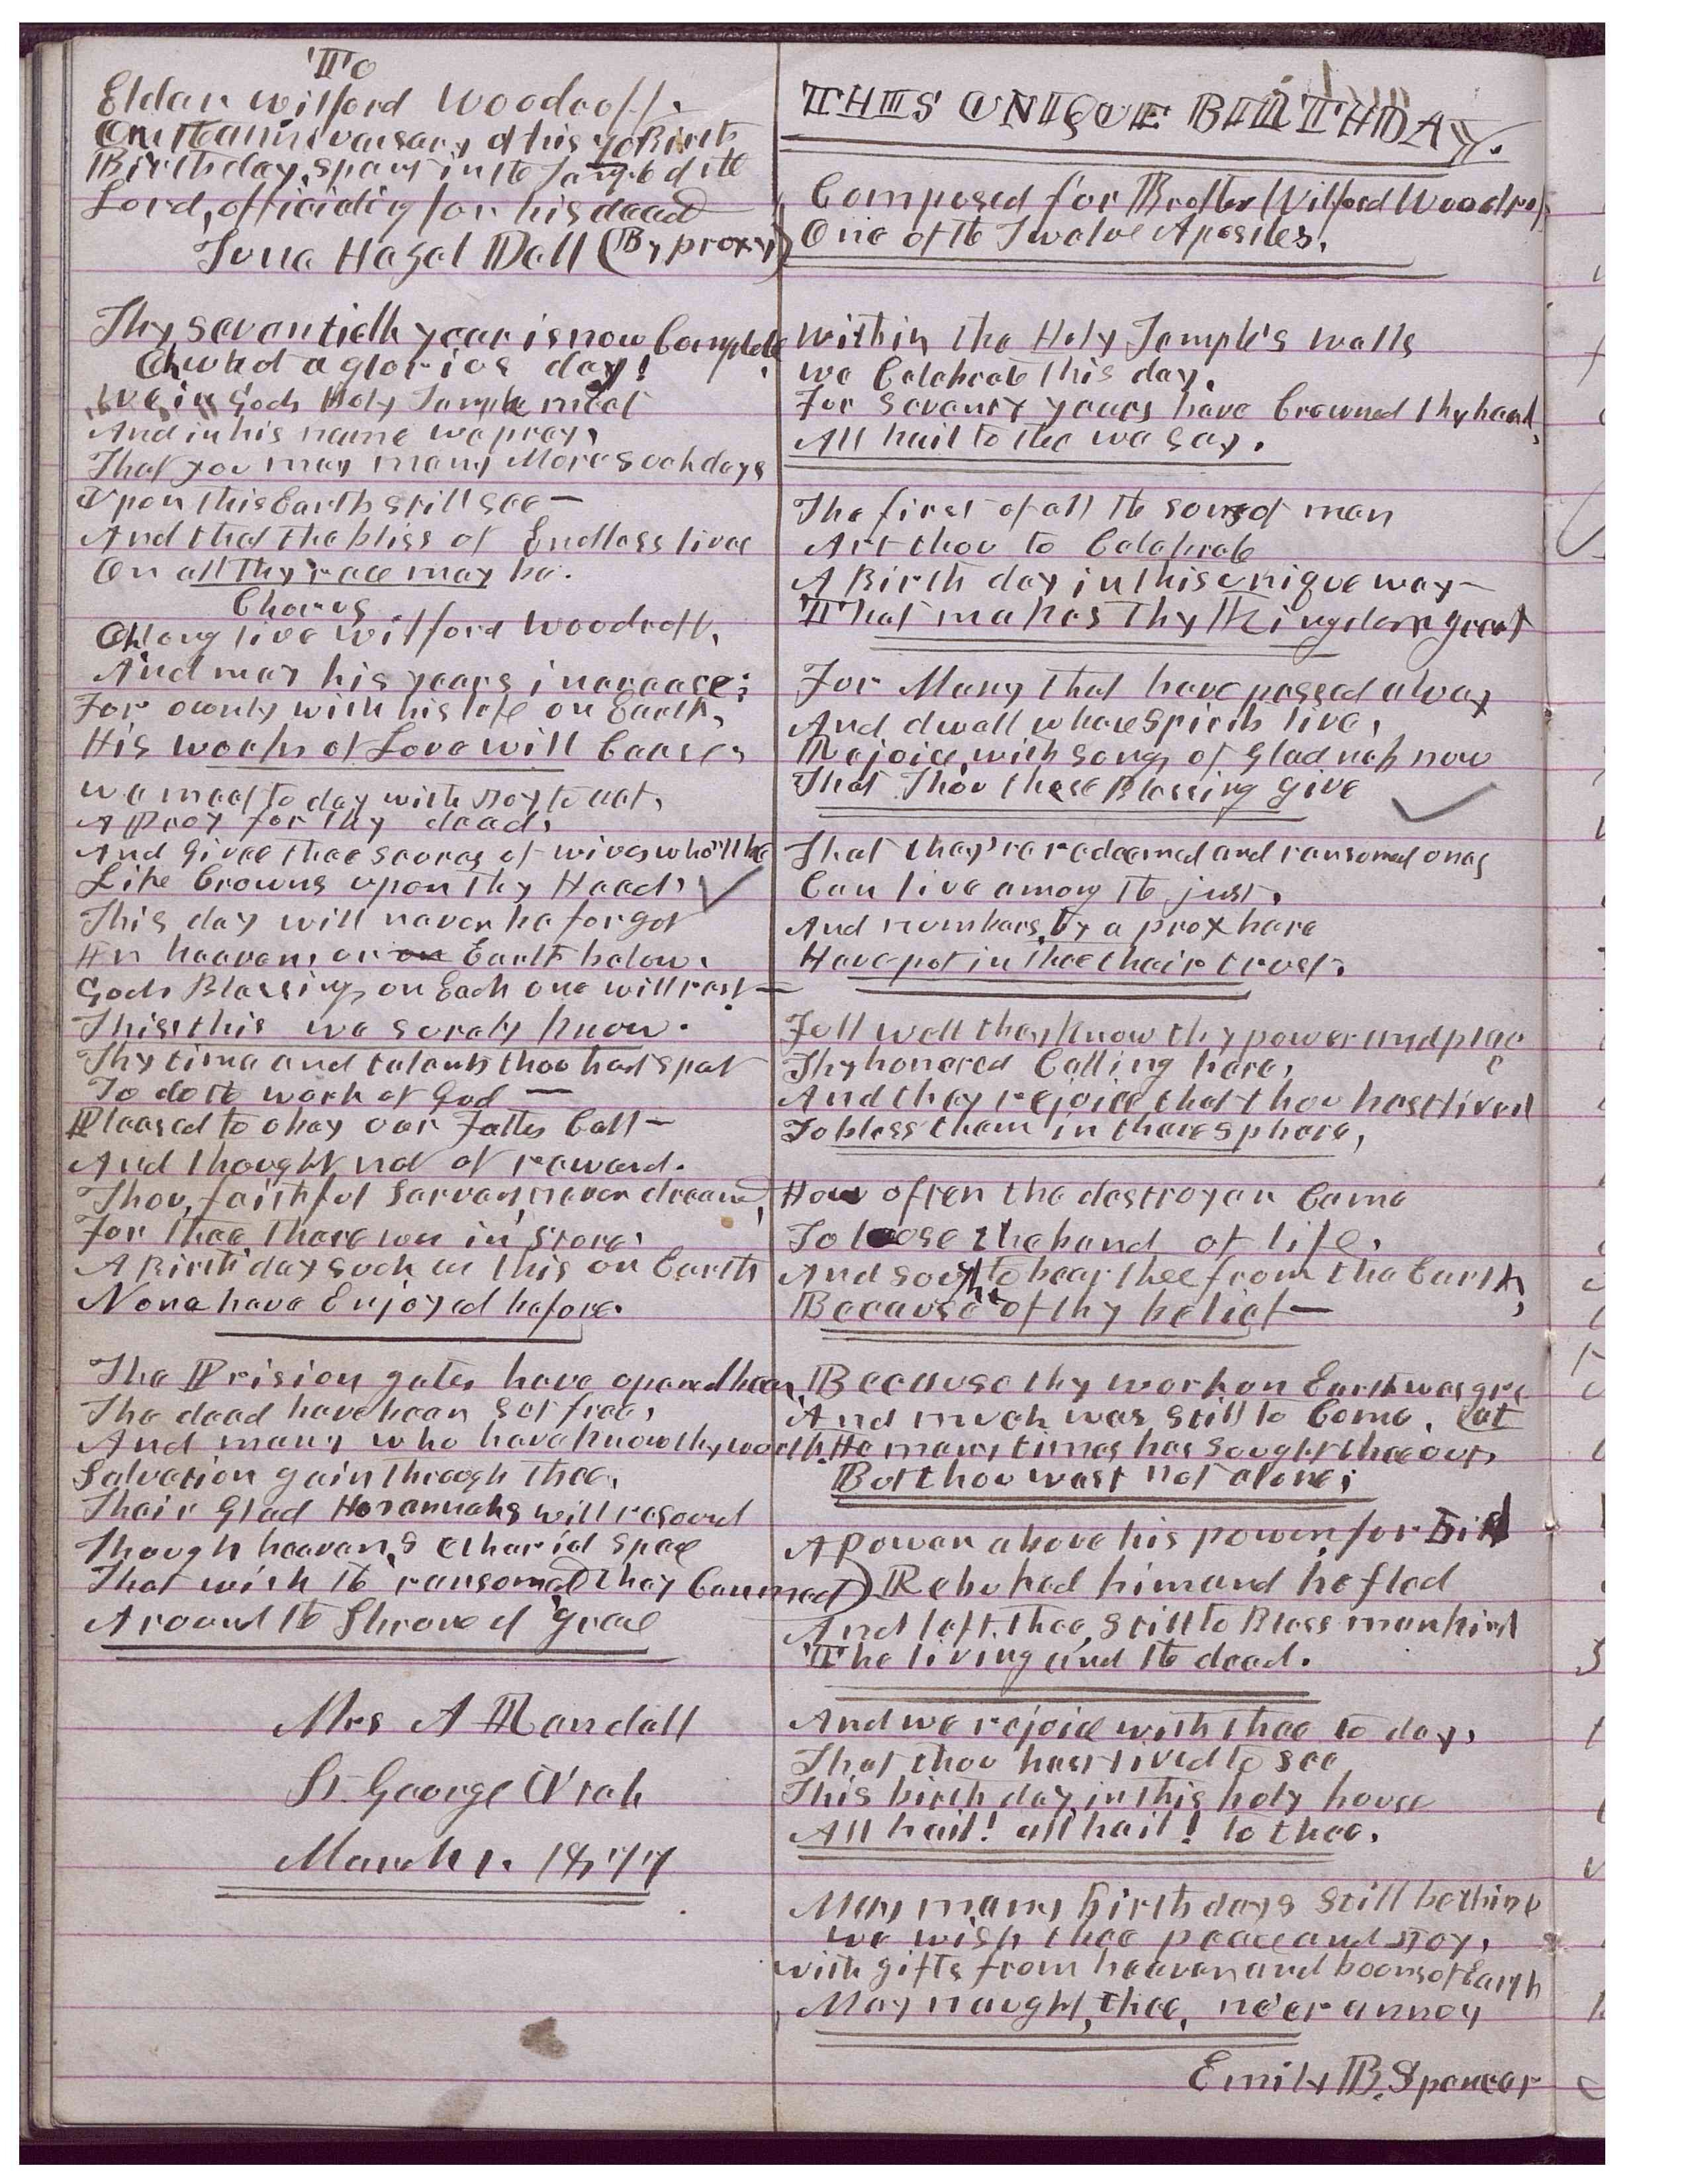 To
Elder Wilford Woodroff.
On the annivarsary of his 70 Birth
Birthday, spent in the Temple of the
Lord, officiating for his dead
Tune Hazel Dell (By proxy)
Thy seventieth year is now Complete,
Oh what a glorios day!
We in Gods Holy Temple meet
And in his name we pray,
That you may many More such days
Upon this Earth still see—
And that the bliss of Endless lives
On all thy race may be.
Chorus
Oh long live Wilford Woodroff,
And may his years increase;
For ownly with his life on Earth,
His works of Love will Cease,
We meet to day with Joy to act,
A Proxy for thy dead,
And Gives thee scores of wives who'll be
Like Crowns upon thy Head,
This day will never be forgot
In heaven, or on Earth below.
Gods Blessings on Each one will rest—
This, this we surely know.
Thy time and talents thou hast spet
To do the work of God —
Pleased to obey our Fathers Call—
And thought not of reward.
Thou, faithful Servant, never dreamed,
For thee there wer in store,
A Birth day such as this on Earth
None have Enjoyed before.
The Prision gates have opened been,
The dead have been set free,
And many who have know thy worth,
Salvation gain through thee,
Their Glad Hosannahs will resound
Though heavens etheriel space
That with the ransomed they Can meet)
Around the Throne of grace
Mrs A Randall
St. George Utah
March 1. 1877
THIS UNIQUE BIRTHDAY.
Composed for Brother Wilford Woodroff
One of the Twelve Apostles.
Within the Holy Temple's walls
we Celebrate this day.
For Seventy years have Crowned thy head,
All hail to thee we say.
The first of all the sons of men
Art thou to Celebrate
A Birth day in this unique way—
That makes thy Kingdom great
For Many that have passed away
And dwell where Spirits live,
Rejoice, with songs of Gladness now
That Thou these Blessing give
That they're redeemed and ransomed ones
Can live among the just,
And numbers, by a proxy here
Have put in thee their trust.
Full well they know thy power and place
Thy honored Calling here,
And they rejoice that thou hast lived
To bless them in there sphere,
How often the destroyer Came
To loose the band of life,
And sought to bear thee from the Earth,
Because of thy belief—
Because thy work on Earth was great
And much was still to Come.
He many times has sought thee out,
But thou wast not alone;
A Power above his power, for bid
Rebuked him and he fled
And left thee, still to Bless mankind
The living and the dead.
And we rejoice with thee to day,
That thou hast lived to see
This birth day in this holy house
All hail! all hail! to thee.
May many birth days still be thine
we wish thee peace and Joy,
with gifts from heaven and boons of Earth
May naught, thee, ne'er annoy
Emily B. Spencer